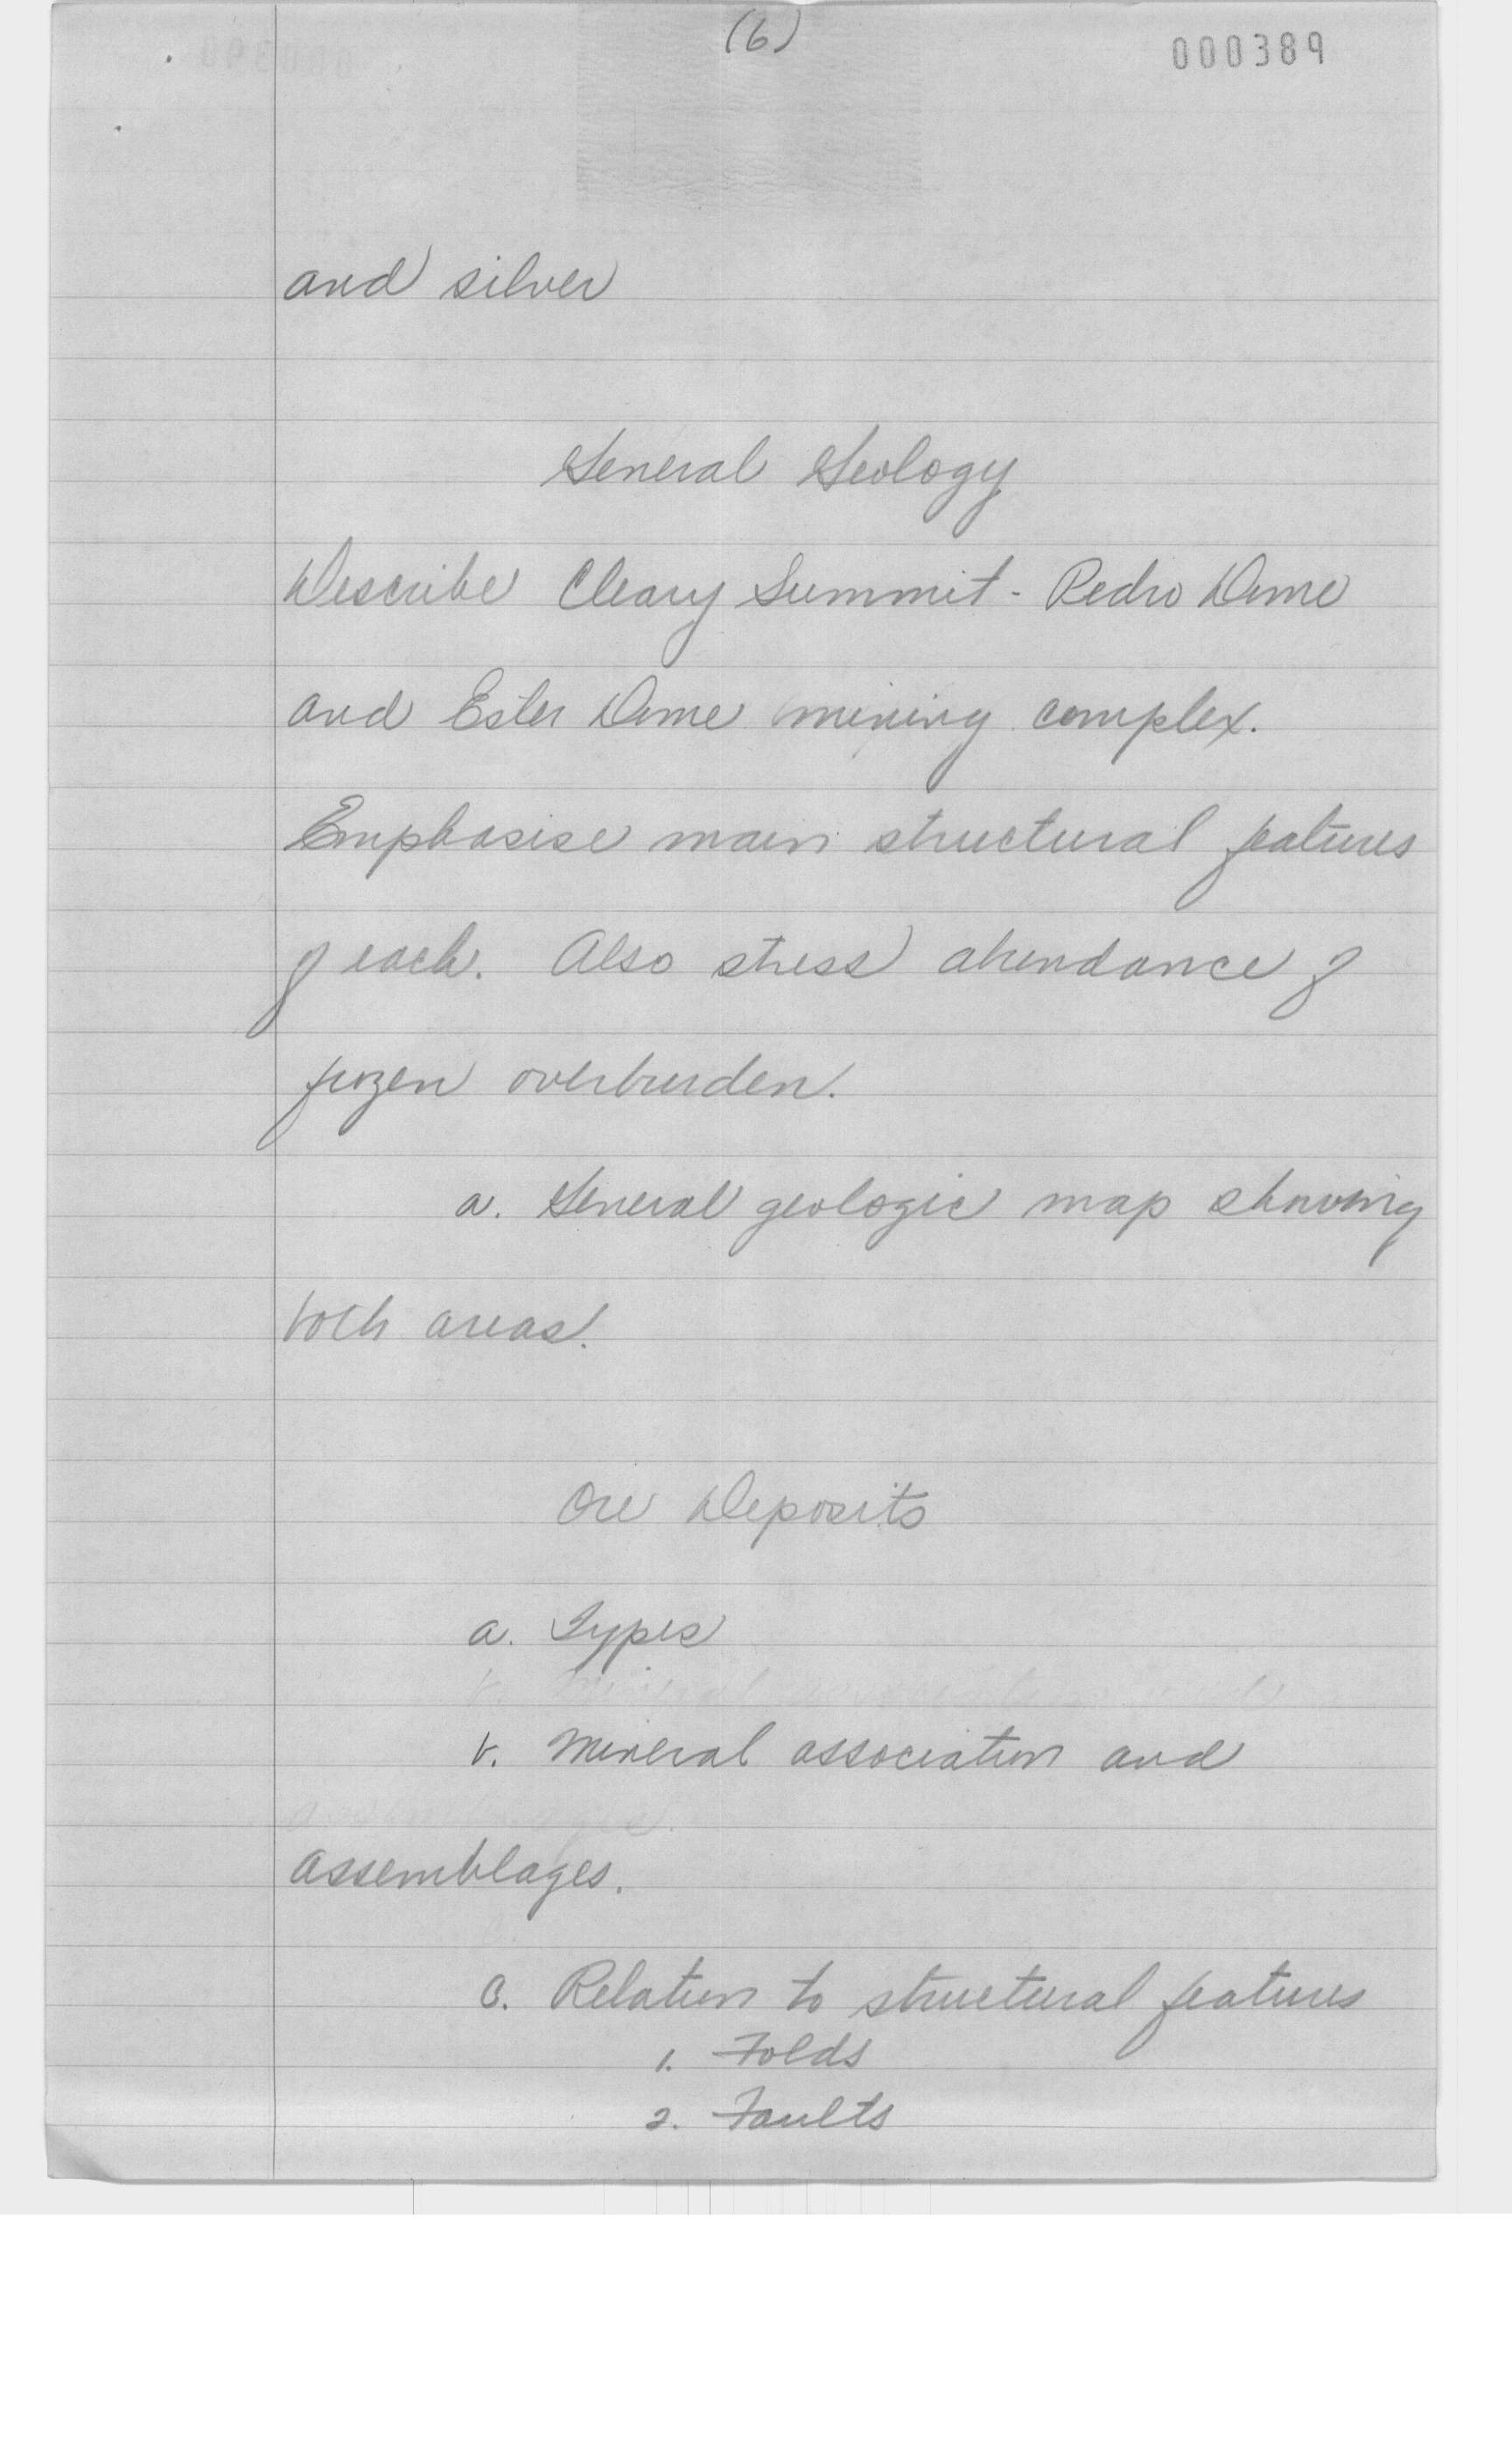 (6)
000389
and silver
General Geology
Describe Cleary Summit - Pedro Dome
and Ester Dome mining complex.
Emphasise main structural features
of each. Also stress abundance of
frozen overburden.
a. General geologic map showing
both areas.
Ore Deposits
a. Types
b. Mineral association and
assemblages.
c. Relation to structural features
1. Folds
2. Faults